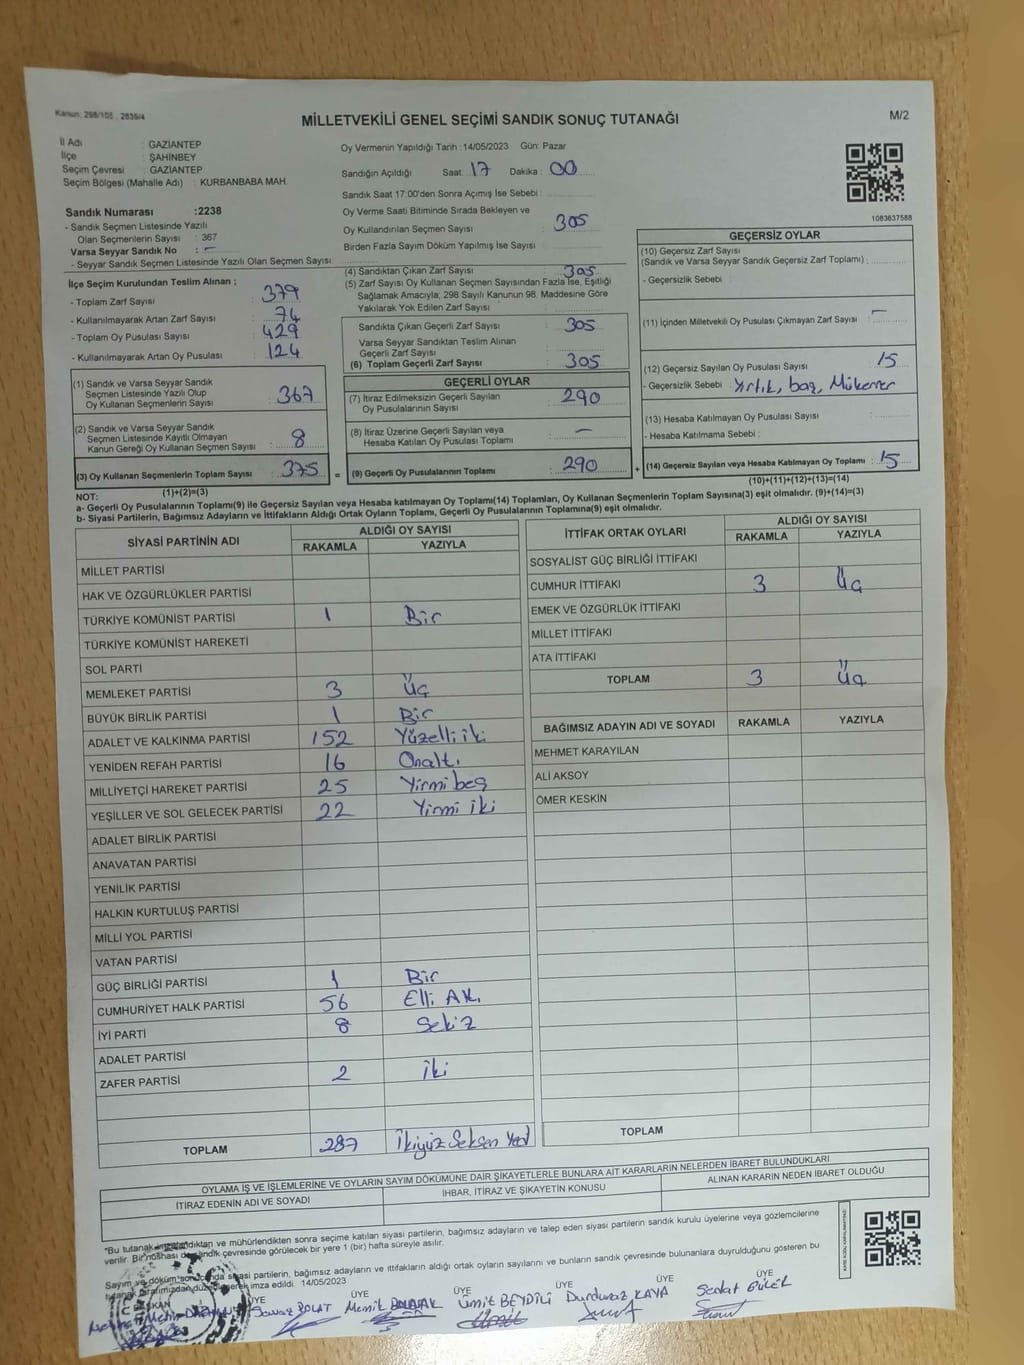 Kanun: 298/105 , 2839/4
MİLLETVEKİLİ GENEL SEÇİMİ SANDIK SONUÇ TUTANAĞI
M/2
İl Adı : GAZİANTEP
İlçe : ŞAHİNBEY
Seçim Çevresi : GAZİANTEP
Seçim Bölgesi (Mahalle Adı) : KURBANBABA MAH.
Sandık Numarası :2238
- Sandık Seçmen Listesinde Yazılı
Olan Seçmenlerin Sayısı : 367
Varsa Seyyar Sandık No : –
- Seyyar Sandık Seçmen Listesinde Yazılı Olan Seçmen Sayısı:
Oy Vermenin Yapıldığı Tarih :14/05/2023 Gün: Pazar
Sandığın Açıldığı Saat: 17 Dakika : 00
Sandık Saat 17:00'den Sonra Açımış İse Sebebi :
Oy Verme Saati Bitiminde Sırada Bekleyen ve
Oy Kullandırılan Seçmen Sayısı : 305
Birden Fazla Sayım Döküm Yapılmış İse Sayısı :
1083637588
İlçe Seçim Kurulundan Teslim Alınan ;
- Toplam Zarf Sayısı : 379
- Kullanılmayarak Artan Zarf Sayısı : 74
- Toplam Oy Pusulası Sayısı : 429
- Kullanılmayarak Artan Oy Pusulası : 124
(1) Sandık ve Varsa Seyyar Sandık
Seçmen Listesinde Yazılı Olup
Oy Kullanan Seçmenlerin Sayısı : 367
(2) Sandık ve Varsa Seyyar Sandık
Seçmen Listesinde Kayıtlı Olmayan
Kanun Gereği Oy Kullanan Seçmen Sayısı : 8
(3) Oy Kullanan Seçmenlerin Toplam Sayısı : 375
(1)+(2)=(3)
(4) Sandıktan Çıkan Zarf Sayısı : 305
(5) Zarf Sayısı Oy Kullanan Seçmen Sayısından Fazla İse, Eşitliği
Sağlamak Amacıyla, 298 Sayılı Kanunun 98. Maddesine Göre
Yakılarak Yok Edilen Zarf Sayısı :
Sandıkta Çıkan Geçerli Zarf Sayısı : 305
Varsa Seyyar Sandıktan Teslim Alınan
Geçerli Zarf Sayısı :
(6) Toplam Geçerli Zarf Sayısı : 305
GEÇERLİ OYLAR
(7) İtiraz Edilmeksizin Geçerli Sayılan
Oy Pusulalarının Sayısı : 290
(8) İtiraz Üzerine Geçerli Sayılan veya
Hesaba Katılan Oy Pusulası Toplamı : –
= (9) Geçerli Oy Pusulalarının Toplamı : 290 +
GEÇERSİZ OYLAR
(10) Geçersiz Zarf Sayısı
(Sandık ve Varsa Seyyar Sandık Geçersiz Zarf Toplamı) :
- Geçersizlik Sebebi :
(11) İçinden Milletvekili Oy Pusulası Çıkmayan Zarf Sayısı : –
(12) Geçersiz Sayılan Oy Pusulası Sayısı : 15
- Geçersizlik Sebebi : Yırtık, boş, Mükerrer
(13) Hesaba Katılmayan Oy Pusulası Sayısı :
- Hesaba Katılmama Sebebi :
(14) Geçersiz Sayılan veya Hesaba Katılmayan Oy Toplamı : 15
(10)+(11)+(12)+(13)=(14)
NOT:
a- Geçerli Oy Pusulalarının Toplamı(9) ile Geçersiz Sayılan veya Hesaba katılmayan Oy Toplamı(14) Toplamları, Oy Kullanan Seçmenlerin Toplam Sayısına(3) eşit olmalıdır. (9)+(14)=(3)
b- Siyasi Partilerin, Bağımsız Adayların ve İttifakların Aldığı Ortak Oyların Toplamı, Geçerli Oy Pusulalarının Toplamına(9) eşit olmalıdır.
SİYASİ PARTİNİN ADI
ALDIĞI OY SAYISI
RAKAMLA YAZIYLA
MİLLET PARTİSİ
HAK VE ÖZGÜRLÜKLER PARTİSİ
TÜRKİYE KOMÜNİST PARTİSİ 1 Bir
TÜRKİYE KOMÜNİST HAREKETİ
SOL PARTİ
MEMLEKET PARTİSİ 3 Üç
BÜYÜK BİRLİK PARTİSİ 1 Bir
ADALET VE KALKINMA PARTİSİ 152 Yüzelli iki
YENİDEN REFAH PARTİSİ 16 Onaltı
MİLLİYETÇİ HAREKET PARTİSİ 25 Yirmi beş
YEŞİLLER VE SOL GELECEK PARTİSİ 22 Yirmi iki
ADALET BİRLİK PARTİSİ
ANAVATAN PARTİSİ
YENİLİK PARTİSİ
HALKIN KURTULUŞ PARTİSİ
MİLLİ YOL PARTİSİ
VATAN PARTİSİ
GÜÇ BİRLİĞİ PARTİSİ 1 Bir
CUMHURİYET HALK PARTİSİ 56 Elli Altı
İYİ PARTİ 8 Sekiz
ADALET PARTİSİ
ZAFER PARTİSİ 2 İki
TOPLAM 287 İkiyüz Seksen Yedi
İTTİFAK ORTAK OYLARI
ALDIĞI OY SAYISI
RAKAMLA YAZIYLA
SOSYALİST GÜÇ BİRLİĞİ İTTİFAKI
CUMHUR İTTİFAKI 3 Üç
EMEK VE ÖZGÜRLÜK İTTİFAKI
MİLLET İTTİFAKI
ATA İTTİFAKI
TOPLAM 3 Üç
BAĞIMSIZ ADAYIN ADI VE SOYADI RAKAMLA YAZIYLA
MEHMET KARAYILAN
ALİ AKSOY
ÖMER KESKİN
TOPLAM
OYLAMA İŞ VE İŞLEMLERİNE VE OYLARIN SAYIM DÖKÜMÜNE DAİR ŞİKAYETLERLE BUNLARA AİT KARARLARIN NELERDEN İBARET BULUNDUKLARI
İTİRAZ EDENİN ADI VE SOYADI İHBAR, İTİRAZ VE ŞİKAYETİN KONUSU ALINAN KARARIN NEDEN İBARET OLDUĞU
*Bu tutanak imzalandıktan ve mühürlendikten sonra seçime katılan siyasi partilerin, bağımsız adayların ve talep eden siyasi partilerin sandık kurulu üyelerine veya gözlemcilerine
verilir. Bir nüshası da sandık çevresinde görülecek bir yere 1 (bir) hafta süreyle asılır.
Sayım ve döküm sonucunda siyasi partilerin, bağımsız adayların ve ittifakların aldığı ortak oyların sayılarını ve bunların sandık çevresinde bulunanlara duyurulduğunu gösteren bu
tutanak tarafımızdan düzenlenerek imza edildi. 14/05/2023
BAŞKAN ÜYE ÜYE ÜYE ÜYE ÜYE
Savaş POLAT Ümit BEYDİLİ Durduraz KAYA Sedat GÜLER